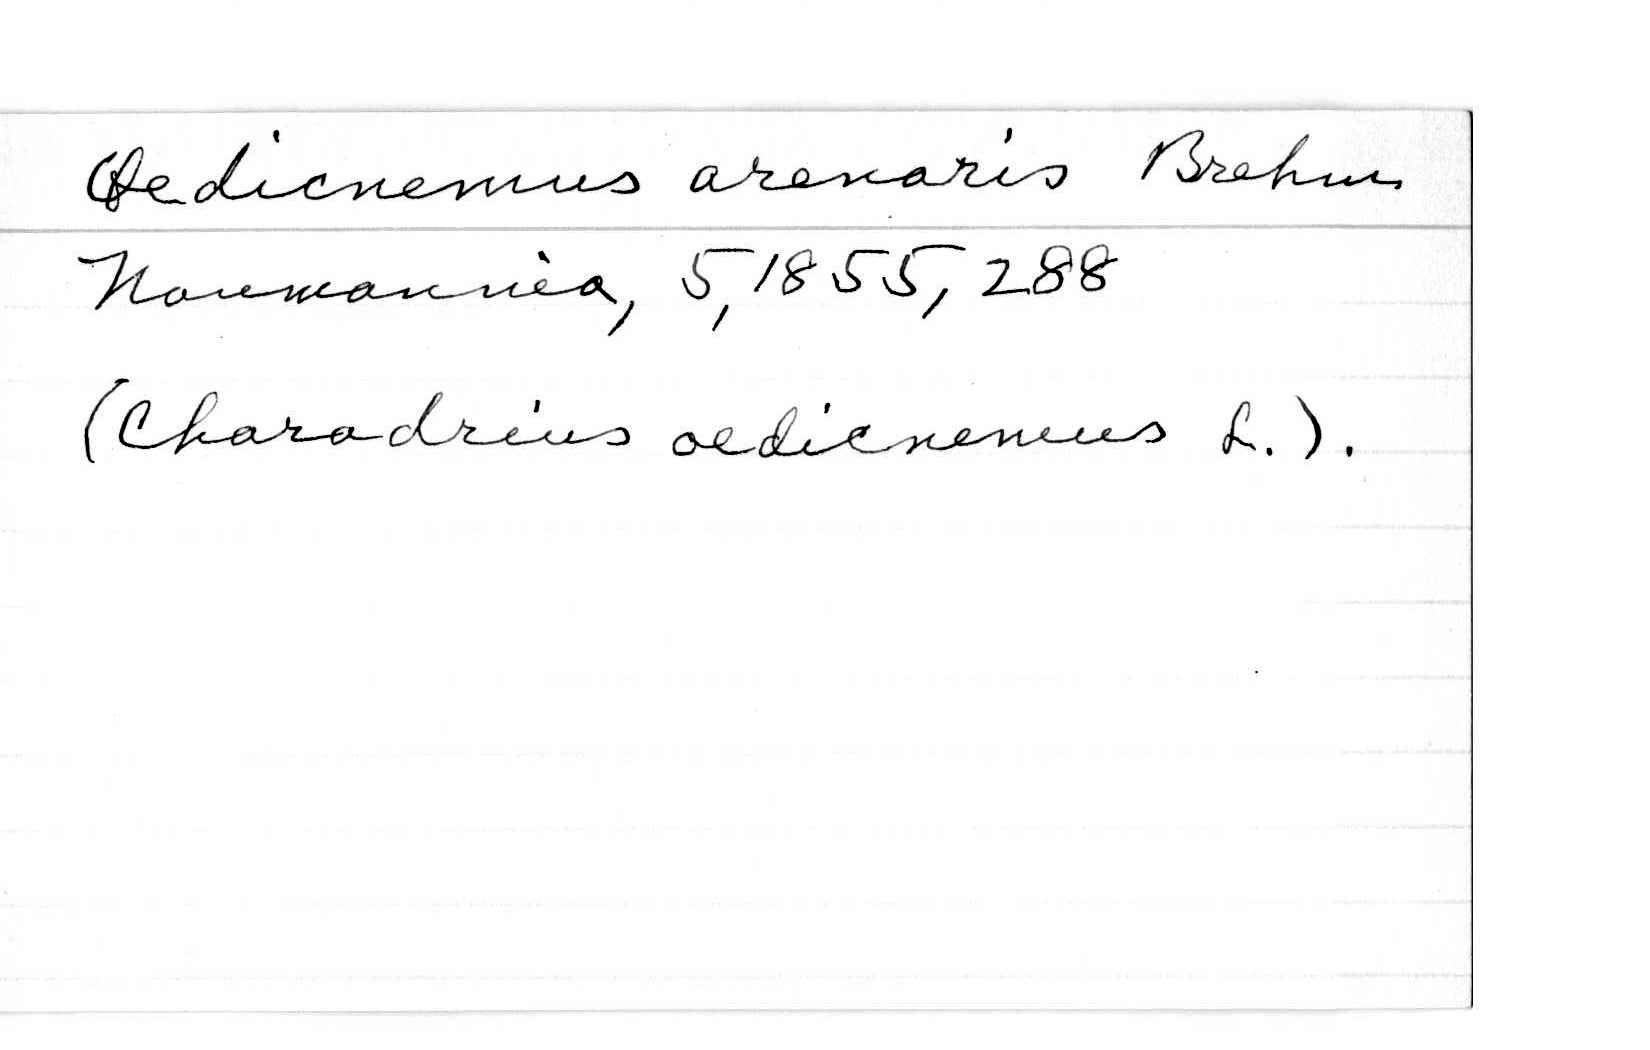 Oedicnemus arenaris Brehm
Naumannia, 5, 1855, 288
(Charadrius oedicnemus L.).